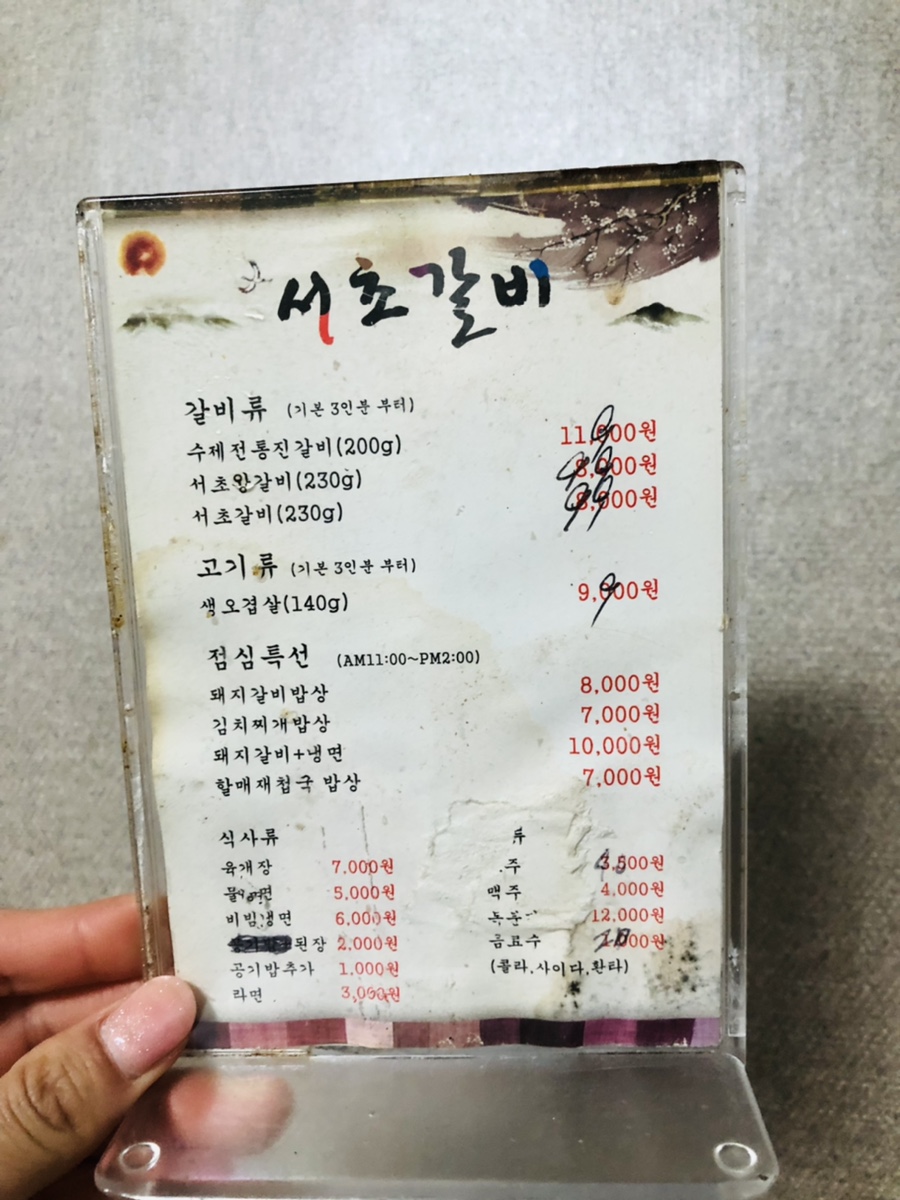 서초갈비
갈비류 (기본 3인분 부터)
수제전통진갈비(200g)
서초왕갈비(230g)
서초갈비(230g)
고기류 (기본 3인분 부터)
생오겹살(140g)
점심특선 (AM11:00~PM2:00)
돼지갈비밥상 8,000원
김치찌개밥상 7,000원
돼지갈비+냉면 10,000원
할매재첩국 밥상 7,000원
식사류 류
육개장 7,000원 주
물냉면 5,000원 맥주 4,000원
비빔냉면 6,000원 12,000원
된장 2,000원 음료수
공기밥추가 1,000원 (콜라,사이다,환타)
라면 3,000원